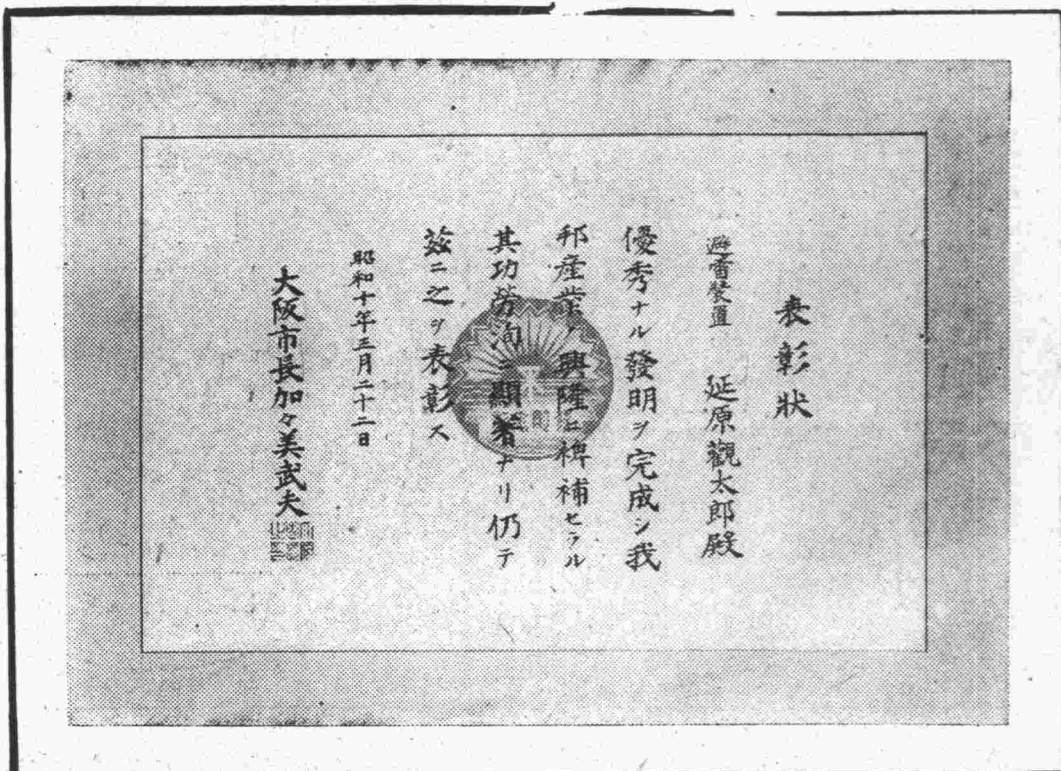 表彰狀
避雷裝置 延原觀太郎殿
優秀ナル發明ヲ完成シ我
邦產業ノ興隆ニ裨補セラル
其功勞洵ニ顯著ナリ仍テ
茲ニ之ヲ表彰ス
昭和十年三月二十二日
大阪市長加々美武夫